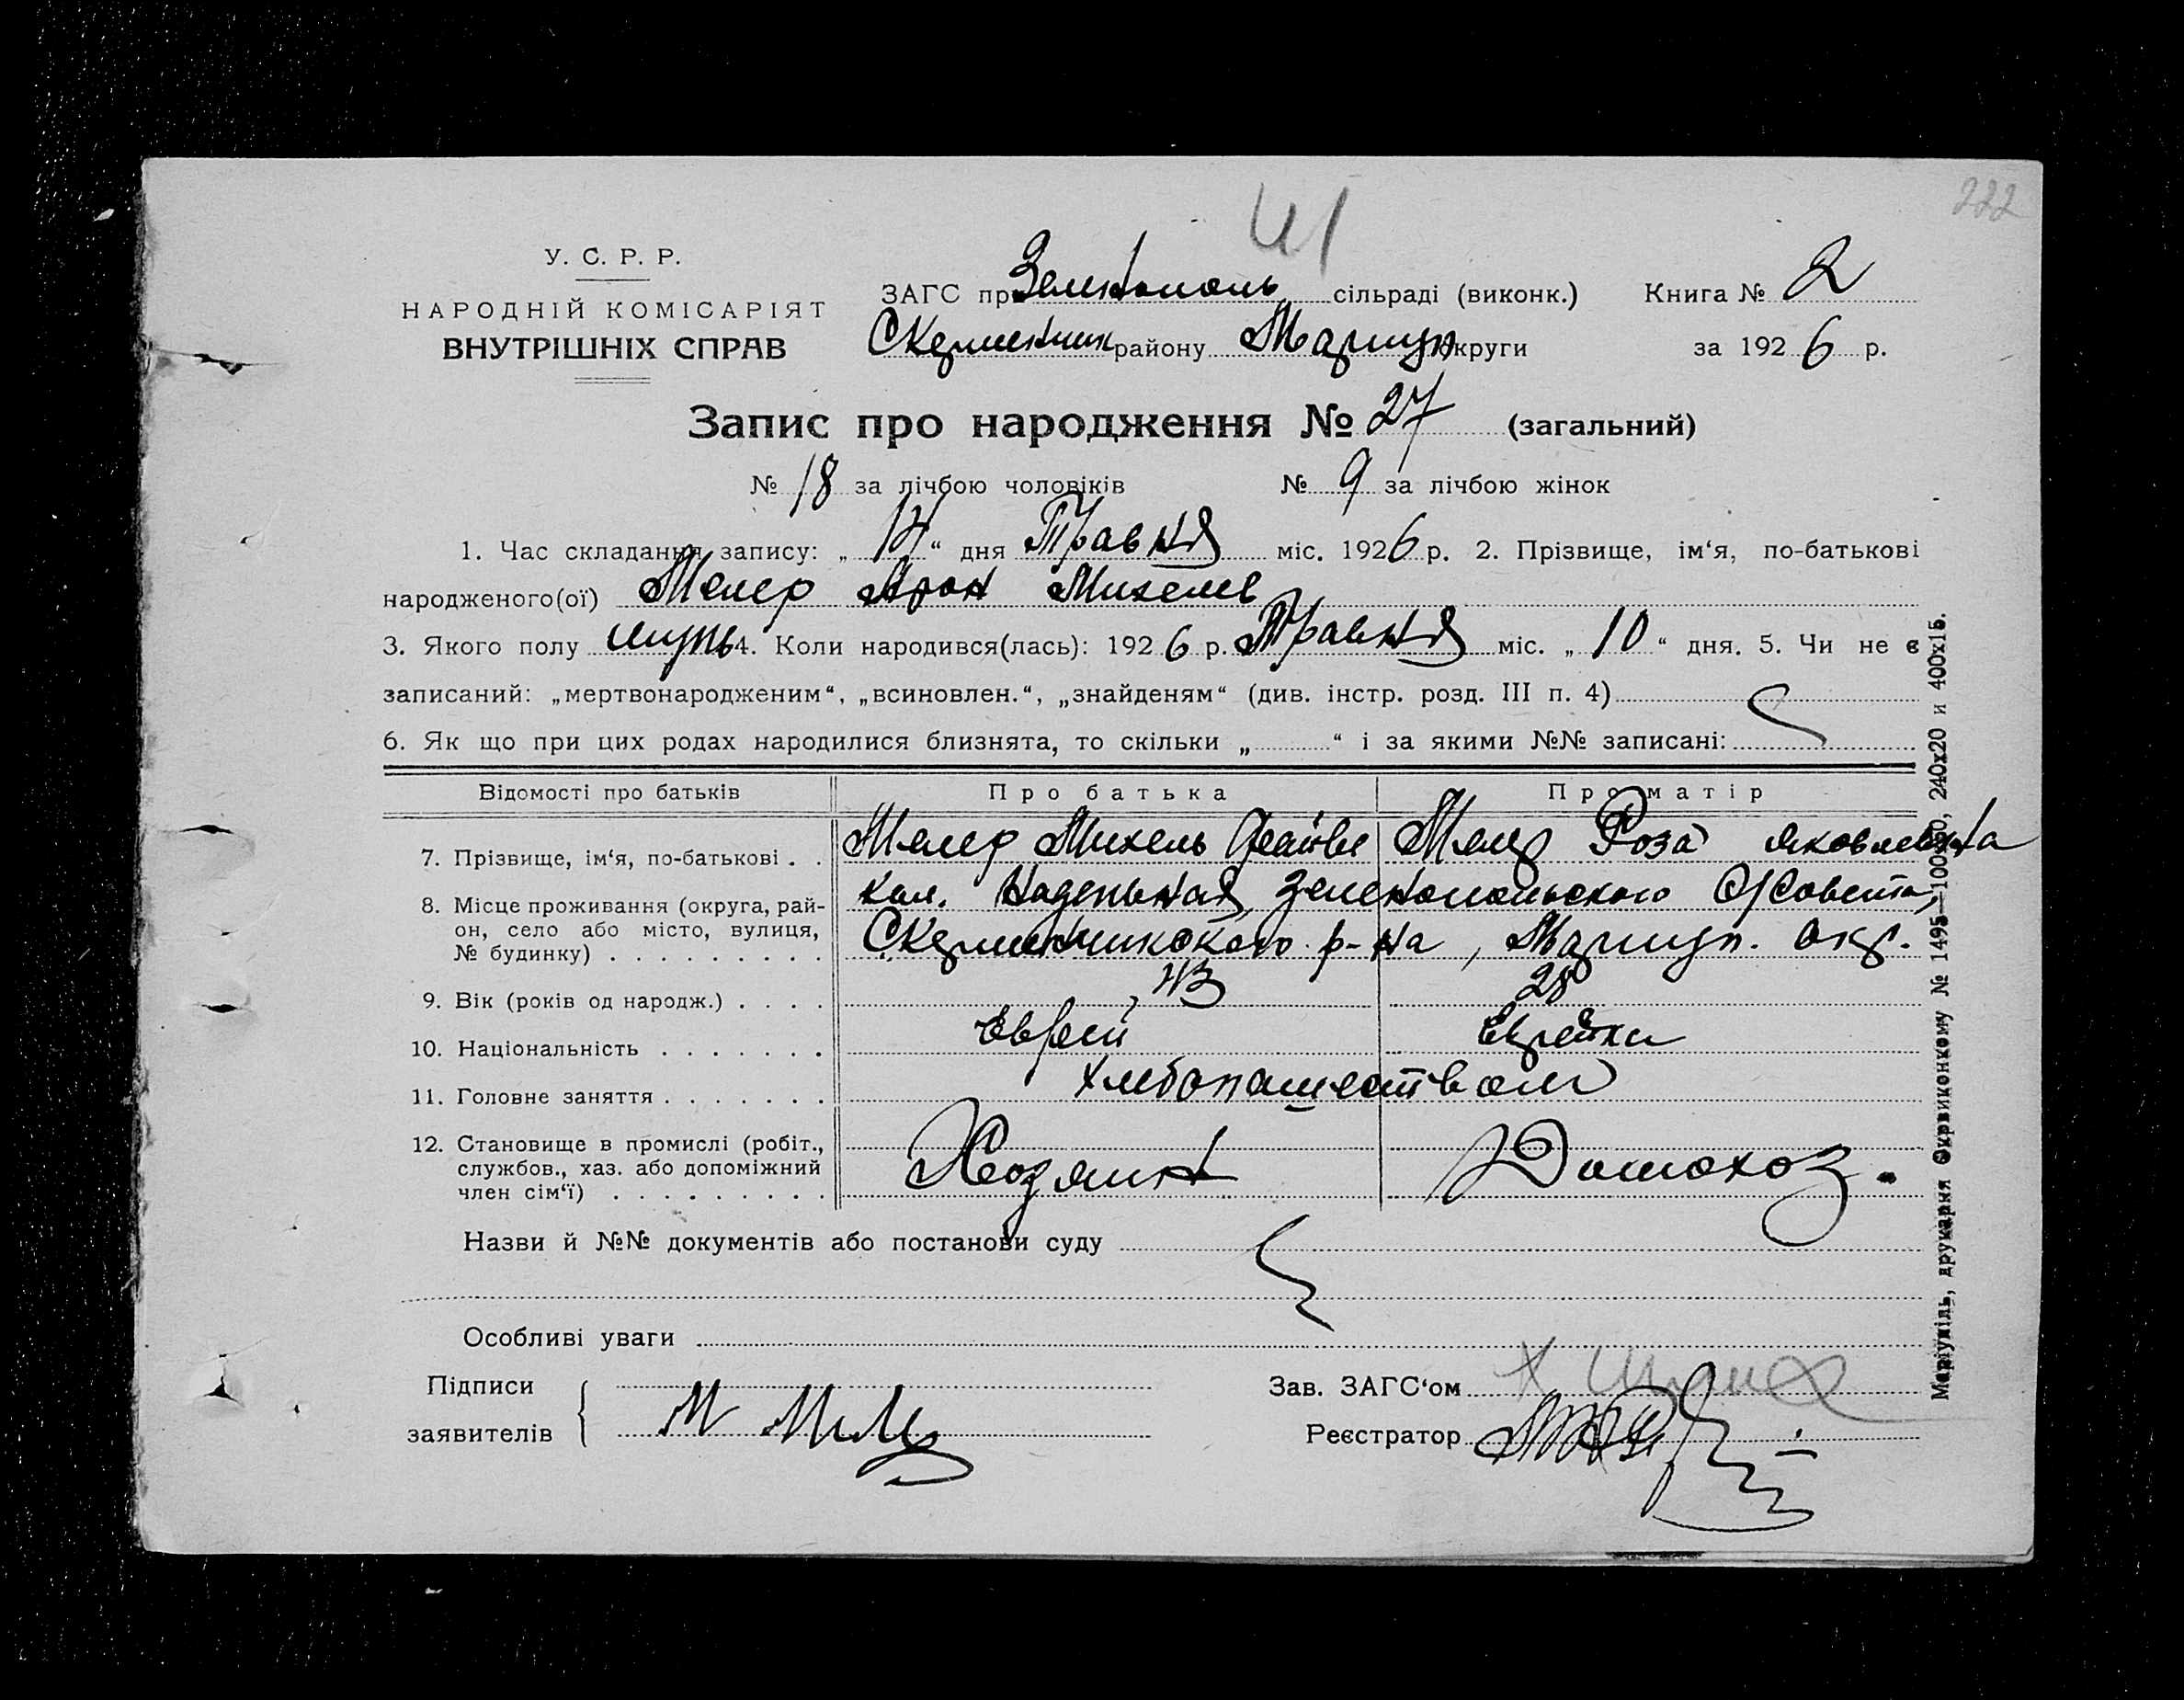 222
41
У. С. Р. Р.
НАРОДНІЙ КОМІСАРІЯТ
ВНУТРІШНІХ СПРАВ
ЗАГС при Зеленополь сільраді (виконк.) Книга № 2
району Мариуп округи за 1926 р.
Запис про народження № 27 (загальний)
№ 18 за лічбою чоловіків № 9 за лічбою жінок
1. Час складання запису: „ “ дня Травня міс. 1926 р. 2. Прізвище, ім‘я, по-батькові
народженого(ої) Мелер Арон Михелев
3. Якого полу 4. Коли народився(лась): 1926 р. Травня міс. „10“ дня. 5. Чи не є
записаний: „мертвонародженим“, „всиновлен.“, „знайденям“ (див. інстр. розд. III п. 4)
6. Як що при цих родах народилися близнята, то скільки „ “ і за якими №№ записані:
Відомості про батьків Про батька Про матір
7. Прізвище, ім‘я, по-батькові . . Мелер Михель Файве Мелер Роза Яковлевна
8. Місце проживання (округа, рай-он, село або місто, вулиця, № будинку) . . . . . . . . . кол. Надежная, Зеленопольского С/Совета,
р-на, Мариуп. Окр.
9. Вік (років од народж.) . . . . 43 28
10. Національність . . . . . . . Еврей Еврейка
11. Головне заняття . . . . . . . Хлебопашеством
12. Становище в промислі (робіт., службов., хаз. або допоміжний член сім‘ї) . . . . . . . . . Хозяин Домохоз.
Назви й №№ документів або постанови суду
Особливі уваги
Підписи
заявителів
М Мелер
Зав. ЗАГС‘ом
Реєстратор
Маріупіль, друкарня Окрвиконкому № 1495—100х50, 240х20 и 400х15.